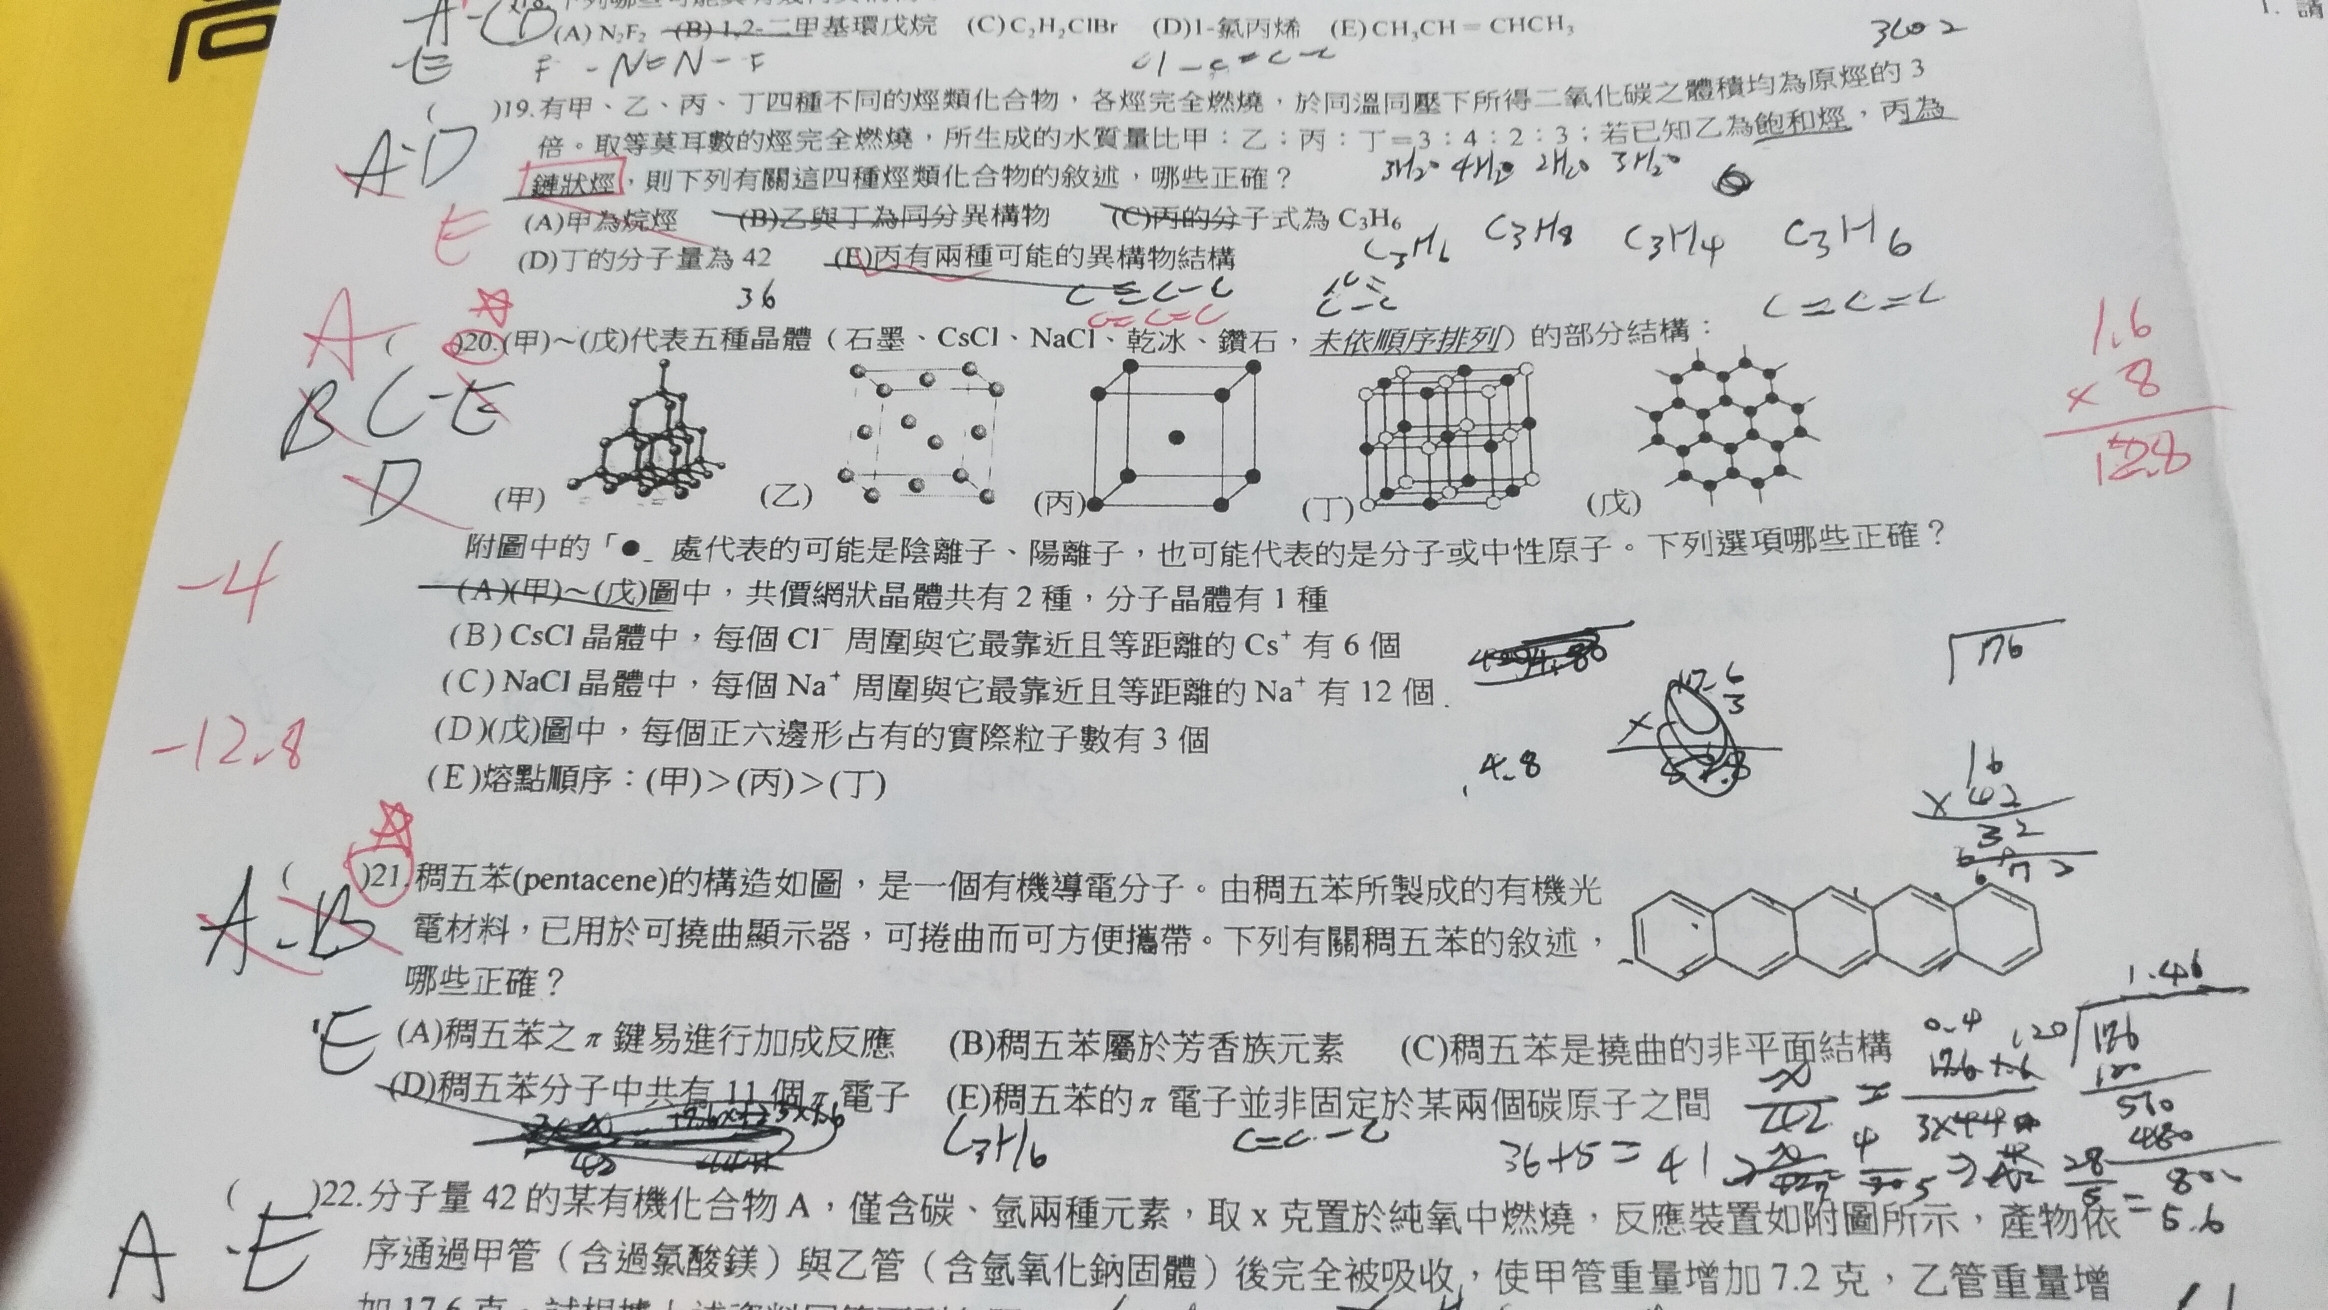 A-CD
(A) N₂F₂ (B) 1,2-二甲基環戊烷 (C) C₂H₂ClBr (D)1-氯丙烯 (E) CH₃CH=CHCH₃
E
F-N=N-F
Cl-C=C-C
3CO2
1. 請
( )19.有甲、乙、丙、丁四種不同的烴類化合物,各烴完全燃燒,於同溫同壓下所得二氧化碳之體積均為原烴的 3
倍。取等莫耳數的烴完全燃燒,所生成的水質量比甲:乙:丙:丁=3:4:2:3;若已知乙為飽和烴,丙為
鏈狀烴,則下列有關這四種烴類化合物的敘述,哪些正確?
A-D
3H₂O 4H₂O 2H₂O 3H₂O
E
(A)甲為烷烴 (B)乙與丁為同分異構物 (C)丙的分子式為 C₃H₆
C₃H₆ C₃H₈ C₃H₄ C₃H₆
(D)丁的分子量為 42 (E)丙有兩種可能的異構物結構
36
C≡C-C
C=C=C
C=C=C
1.6
×8
12.8
A
( )20.(甲)~(戊)代表五種晶體(石墨、CsCl、NaCl、乾冰、鑽石,未依順序排列)的部分結構:
B C-E
D
(甲) (乙) (丙) (丁) (戊)
附圖中的「●」處代表的可能是陰離子、陽離子,也可能代表的是分子或中性原子。下列選項哪些正確?
-4
(A)(甲)~(戊)圖中,共價網狀晶體共有 2 種,分子晶體有 1 種
(B) CsCl 晶體中,每個 Cl⁻ 周圍與它最靠近且等距離的 Cs⁺ 有 6 個
(C) NaCl 晶體中,每個 Na⁺ 周圍與它最靠近且等距離的 Na⁺ 有 12 個
(D)(戊)圖中,每個正六邊形占有的實際粒子數有 3 個
(E)熔點順序:(甲)>(丙)>(丁)
-12.8
176
4.8
16
×42
32
64
672
( )21.稠五苯(pentacene)的構造如圖,是一個有機導電分子。由稠五苯所製成的有機光
電材料,已用於可撓曲顯示器,可捲曲而可方便攜帶。下列有關稠五苯的敘述,
哪些正確?
A-B
E
(A)稠五苯之 π 鍵易進行加成反應 (B)稠五苯屬於芳香族元素 (C)稠五苯是撓曲的非平面結構
(D)稠五苯分子中共有 11 個 π 電子 (E)稠五苯的 π 電子並非固定於某兩個碳原子之間
1.46
120
176
120
560
480
80
C₃H₆
C=C-C
36+5=41
28
5
=5.6
( )22.分子量 42 的某有機化合物 A,僅含碳、氫兩種元素,取 x 克置於純氧中燃燒,反應裝置如附圖所示,產物依
A-E
序通過甲管(含過氯酸鎂)與乙管(含氫氧化鈉固體)後完全被吸收,使甲管重量增加 7.2 克,乙管重量增